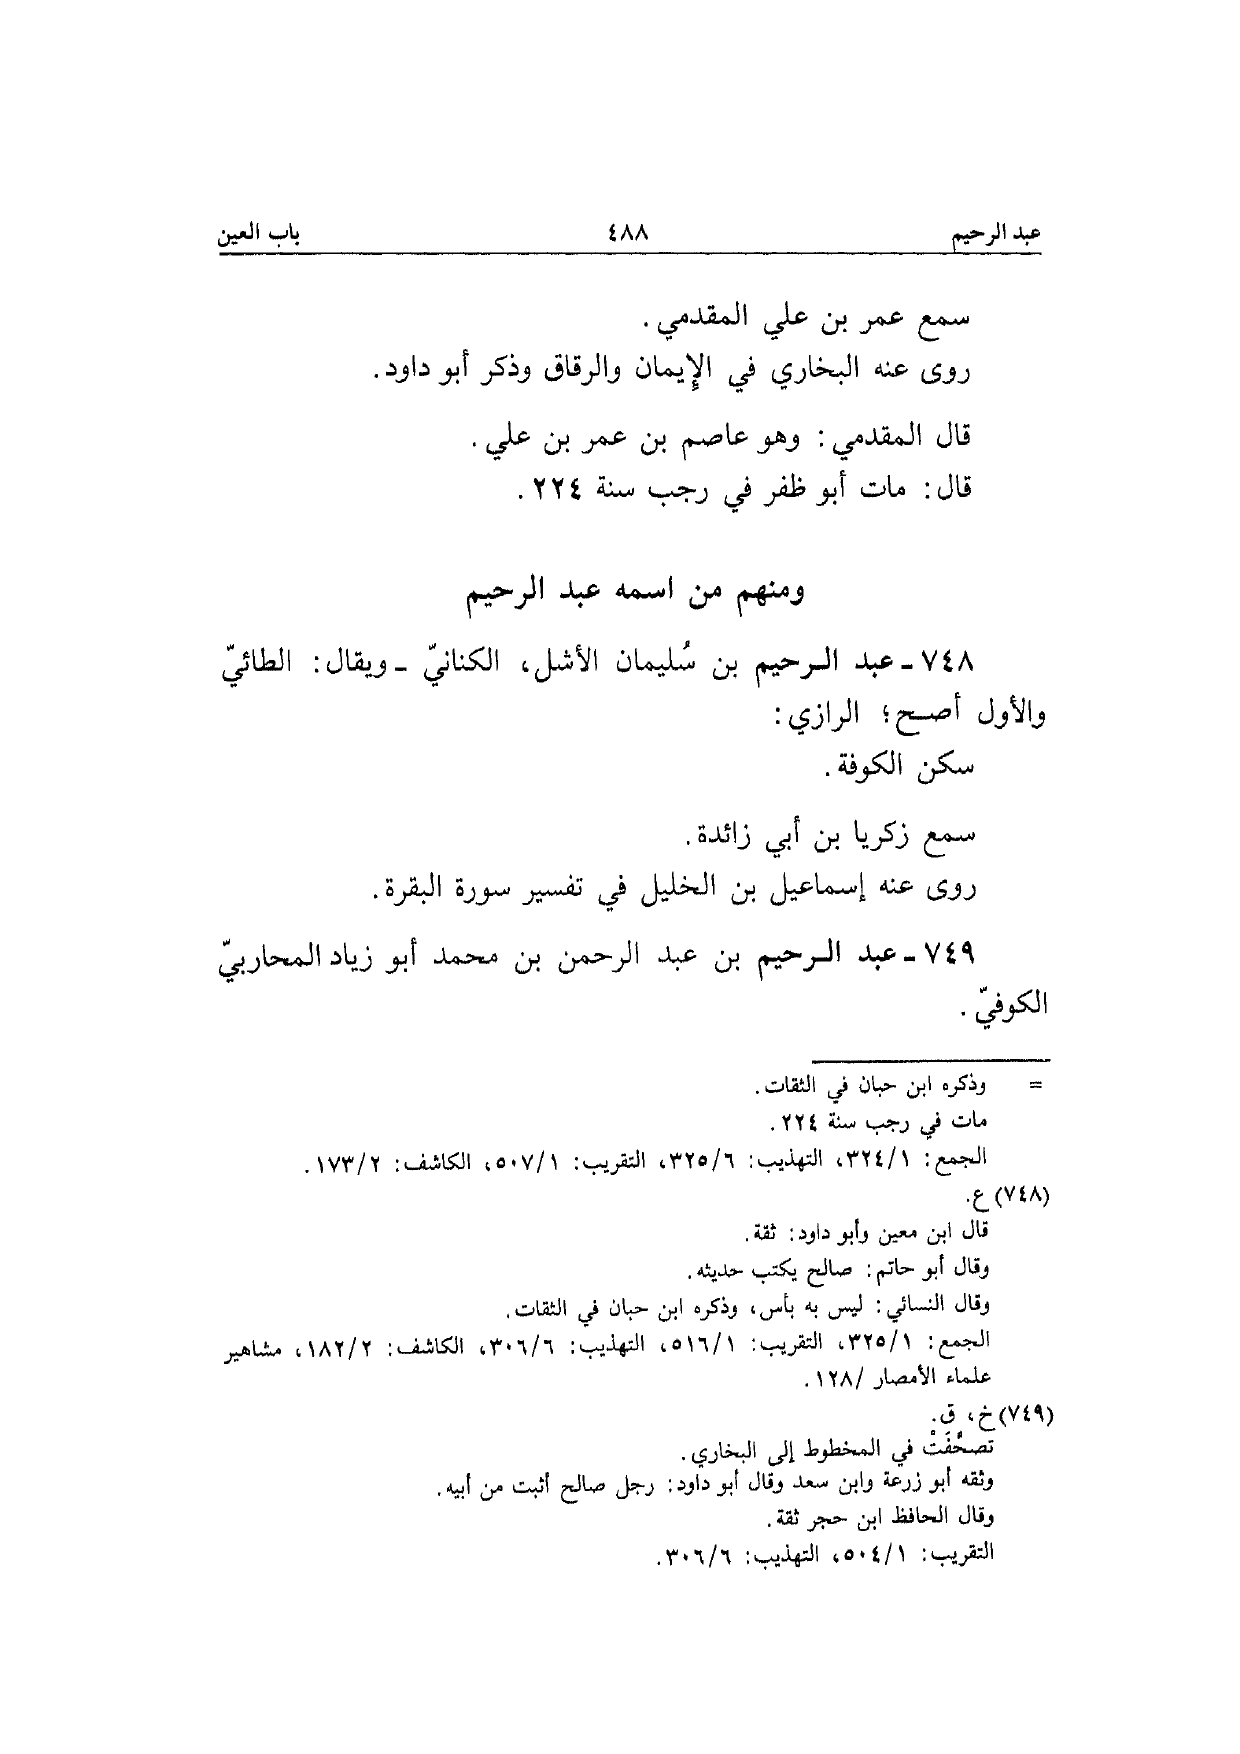 عبد الرحيم ٤٨٨ باب العين
سمع عمر بن علي المقدمي.
روى عنه البخاري في الإيمان والرقاق وذكر أبو داود.
قال المقدمي: وهو عاصم بن عمر بن علي.
قال: مات أبو ظفر في رجب سنة ٢٢٤.
ومنهم من اسمه عبد الرحيم
٧٤٨ ـ عبد الرحيم بن سُليمان الأشل، الكنانيّ ـ ويقال: الطائيّ
والأول أصح؛ الرازي:
سكن الكوفة.
سمع زكريا بن أبي زائدة.
روى عنه إسماعيل بن الخليل في تفسير سورة البقرة.
٧٤٩ ـ عبد الرحيم بن عبد الرحمن بن محمد أبو زياد المحاربيّ
الكوفيّ.
= وذكره ابن حبان في الثقات.
مات في رجب سنة ٢٢٤.
الجمع: ٣٢٤/١، التهذيب: ٣٢٥/٦، التقريب: ٥٠٧/١، الكاشف: ١٧٣/٢.
(٧٤٨) ع.
قال ابن معين وأبو داود: ثقة.
وقال أبو حاتم: صالح يكتب حديثه.
وقال النسائي: ليس به بأس، وذكره ابن حبان في الثقات.
الجمع: ٣٢٥/١، التقريب: ٥١٦/١، التهذيب: ٣٠٦/٦، الكاشف: ١٨٢/٢، مشاهير
علماء الأمصار /١٢٨.
(٧٤٩) خ، ق.
تصحَّفَتْ في المخطوط إلى البخاري.
وثقه أبو زرعة وابن سعد وقال أبو داود: رجل صالح أثبت من أبيه.
وقال الحافظ ابن حجر ثقة.
التقريب: ٥٠٤/١، التهذيب: ٣٠٦/٦.